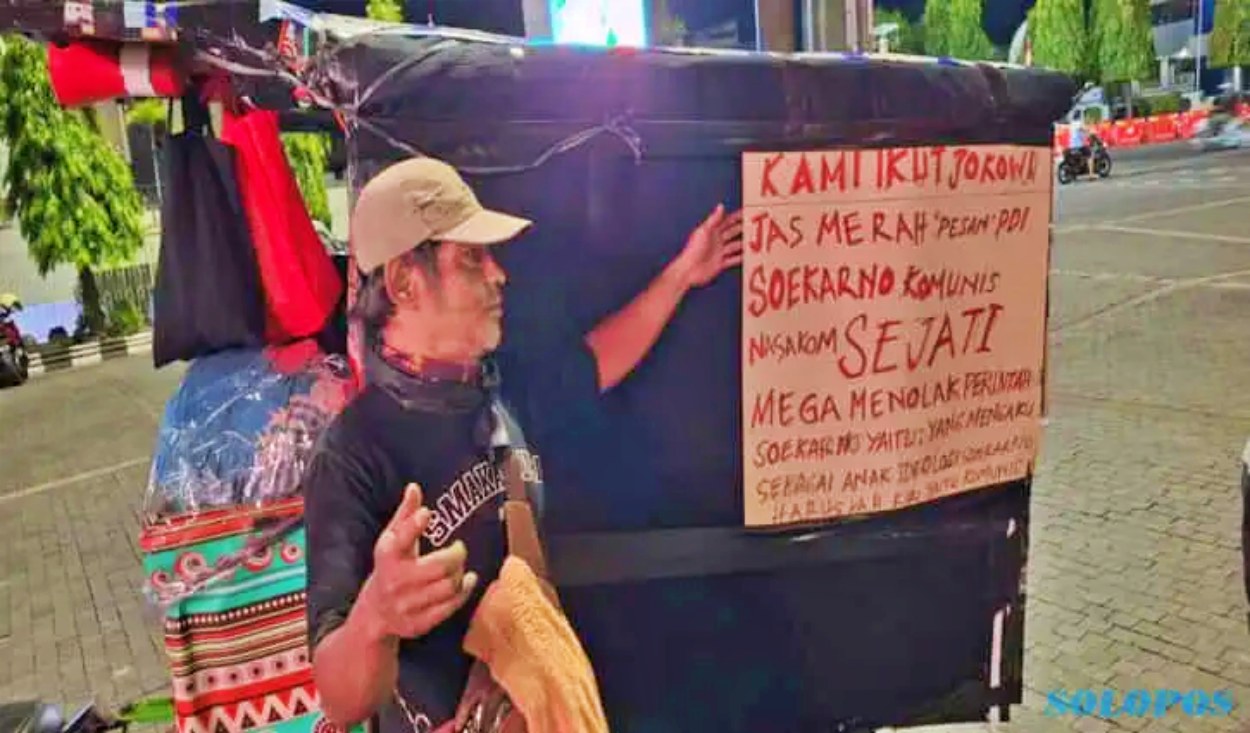 KAMI IKUT JOKOWI
JAS MERAH "PESAN" PDI
SOEKARNO KOMUNIS
NASAKOM SEJATI
MEGA MENOLAK PERINTAH
SOEKARNO YAITU: YANG MENGAKU
SEBAGAI ANAK IDEOLOGI SOEKARNO
HARUSLAH
SMAKA
SOLOPOS